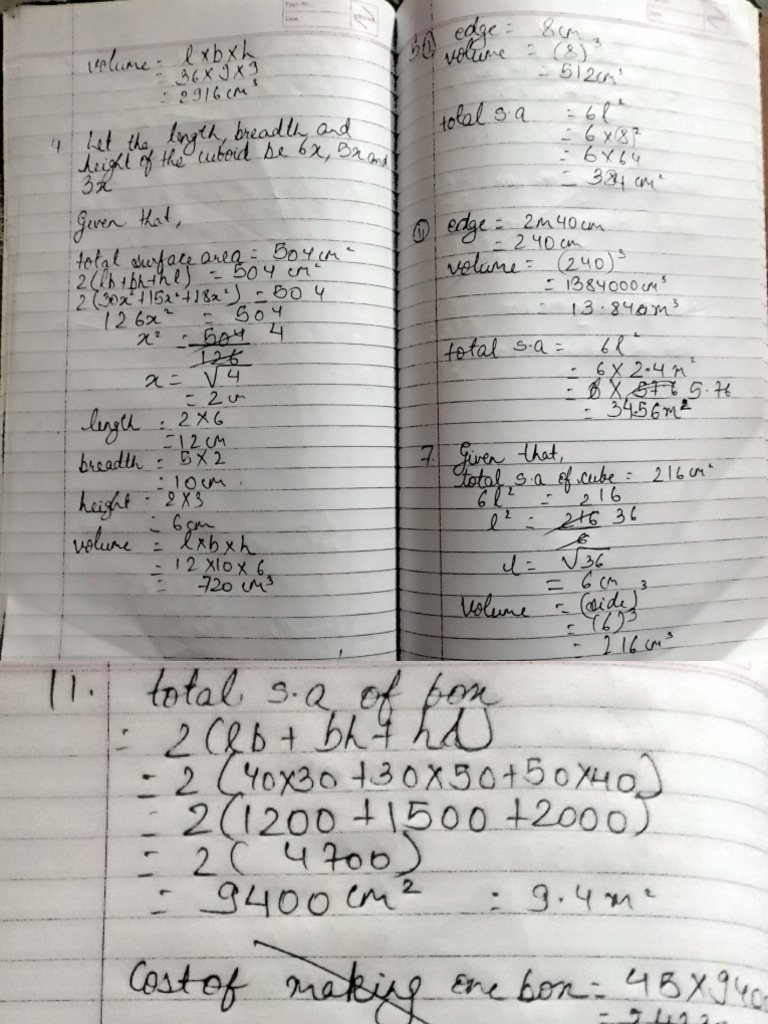 volume = l×b×h
= 36×9×9
= 2916 cm³
4 Let the length, breadth and
height of the cuboid be 6x, 5x and
3x
Given that,
total surface area = 504 cm²
2(lb+bh+hl) = 504 cm²
2(30x²+15x²+18x²) = 504
126x² = 504
x² = 504 4
126
x = √4
= 2 cm
length = 2×6
= 12 cm
breadth = 5×2
= 10 cm
height = 2×3
= 6 cm
volume = l×b×h
= 12×10×6
= 720 cm³
edge = 8cm
volume = (8)³
= 512 cm³
total s.a = 6l²
= 6×(8)²
= 6×64
= 384 cm²
(ii) edge = 2m 40cm
= 240 cm
volume = (240)³
= 1384000 cm³
= 13.840 m³
total s.a = 6l²
= 6×2.4 m²
= 6 × 576 5.76
= 34.56 m²
7. Given that,
total s.a of cube = 216 cm²
6l² = 216
l² = 216 36
6
l = √36
= 6 cm
Volume = (side)³
= (6)³
= 216 cm³
11. total s.a of box
= 2(lb + bh + hl)
= 2(40×30 + 30×50 + 50×40)
= 2(1200 + 1500 + 2000)
= 2(4700)
= 9400 cm² = 9.4 m²
Cost of making one box = 45×940